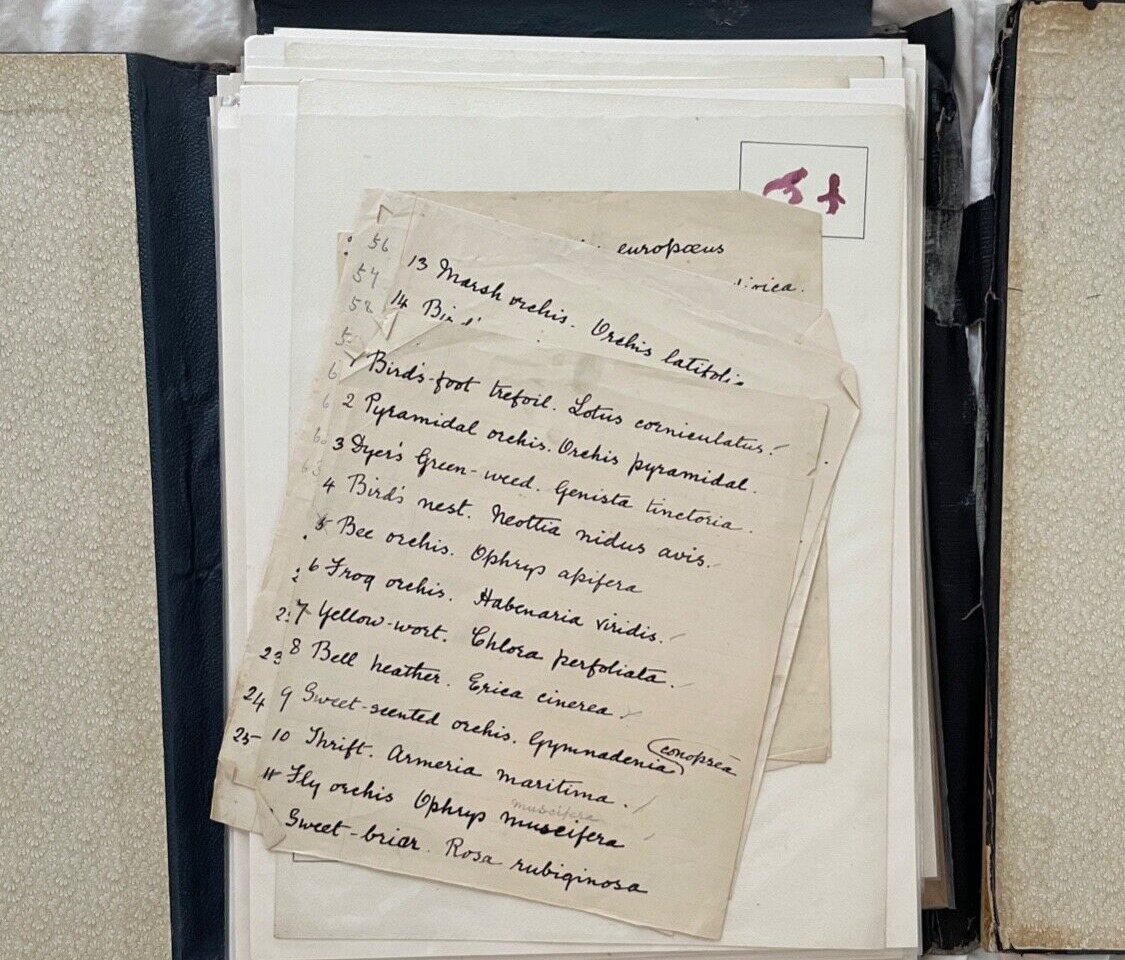 europœus
56
13 Marsh orchis. Orchis latifoli
57
14 Bird
58
Bird's-foot trefoil. Lotus corniculatus.
2 Pyramidal orchis. Orchis pyramidal.
3 Dyer's Green-weed. Genista tinctoria.
4 Bird's nest. Neottia nidus avis.
5 Bee orchis. Ophrys apifera
6 Frog orchis. Habenaria viridis.
7 Yellow-wort. Chlora perfoliata.
23 8 Bell heather. Erica cinerea.
24 9 Sweet-scented orchis. Gymnadenia conopsea
25 10 Thrift. Armeria maritima.
muscifera
11 Fly orchis Ophrys muscifera
Sweet-briar. Rosa rubiginosa